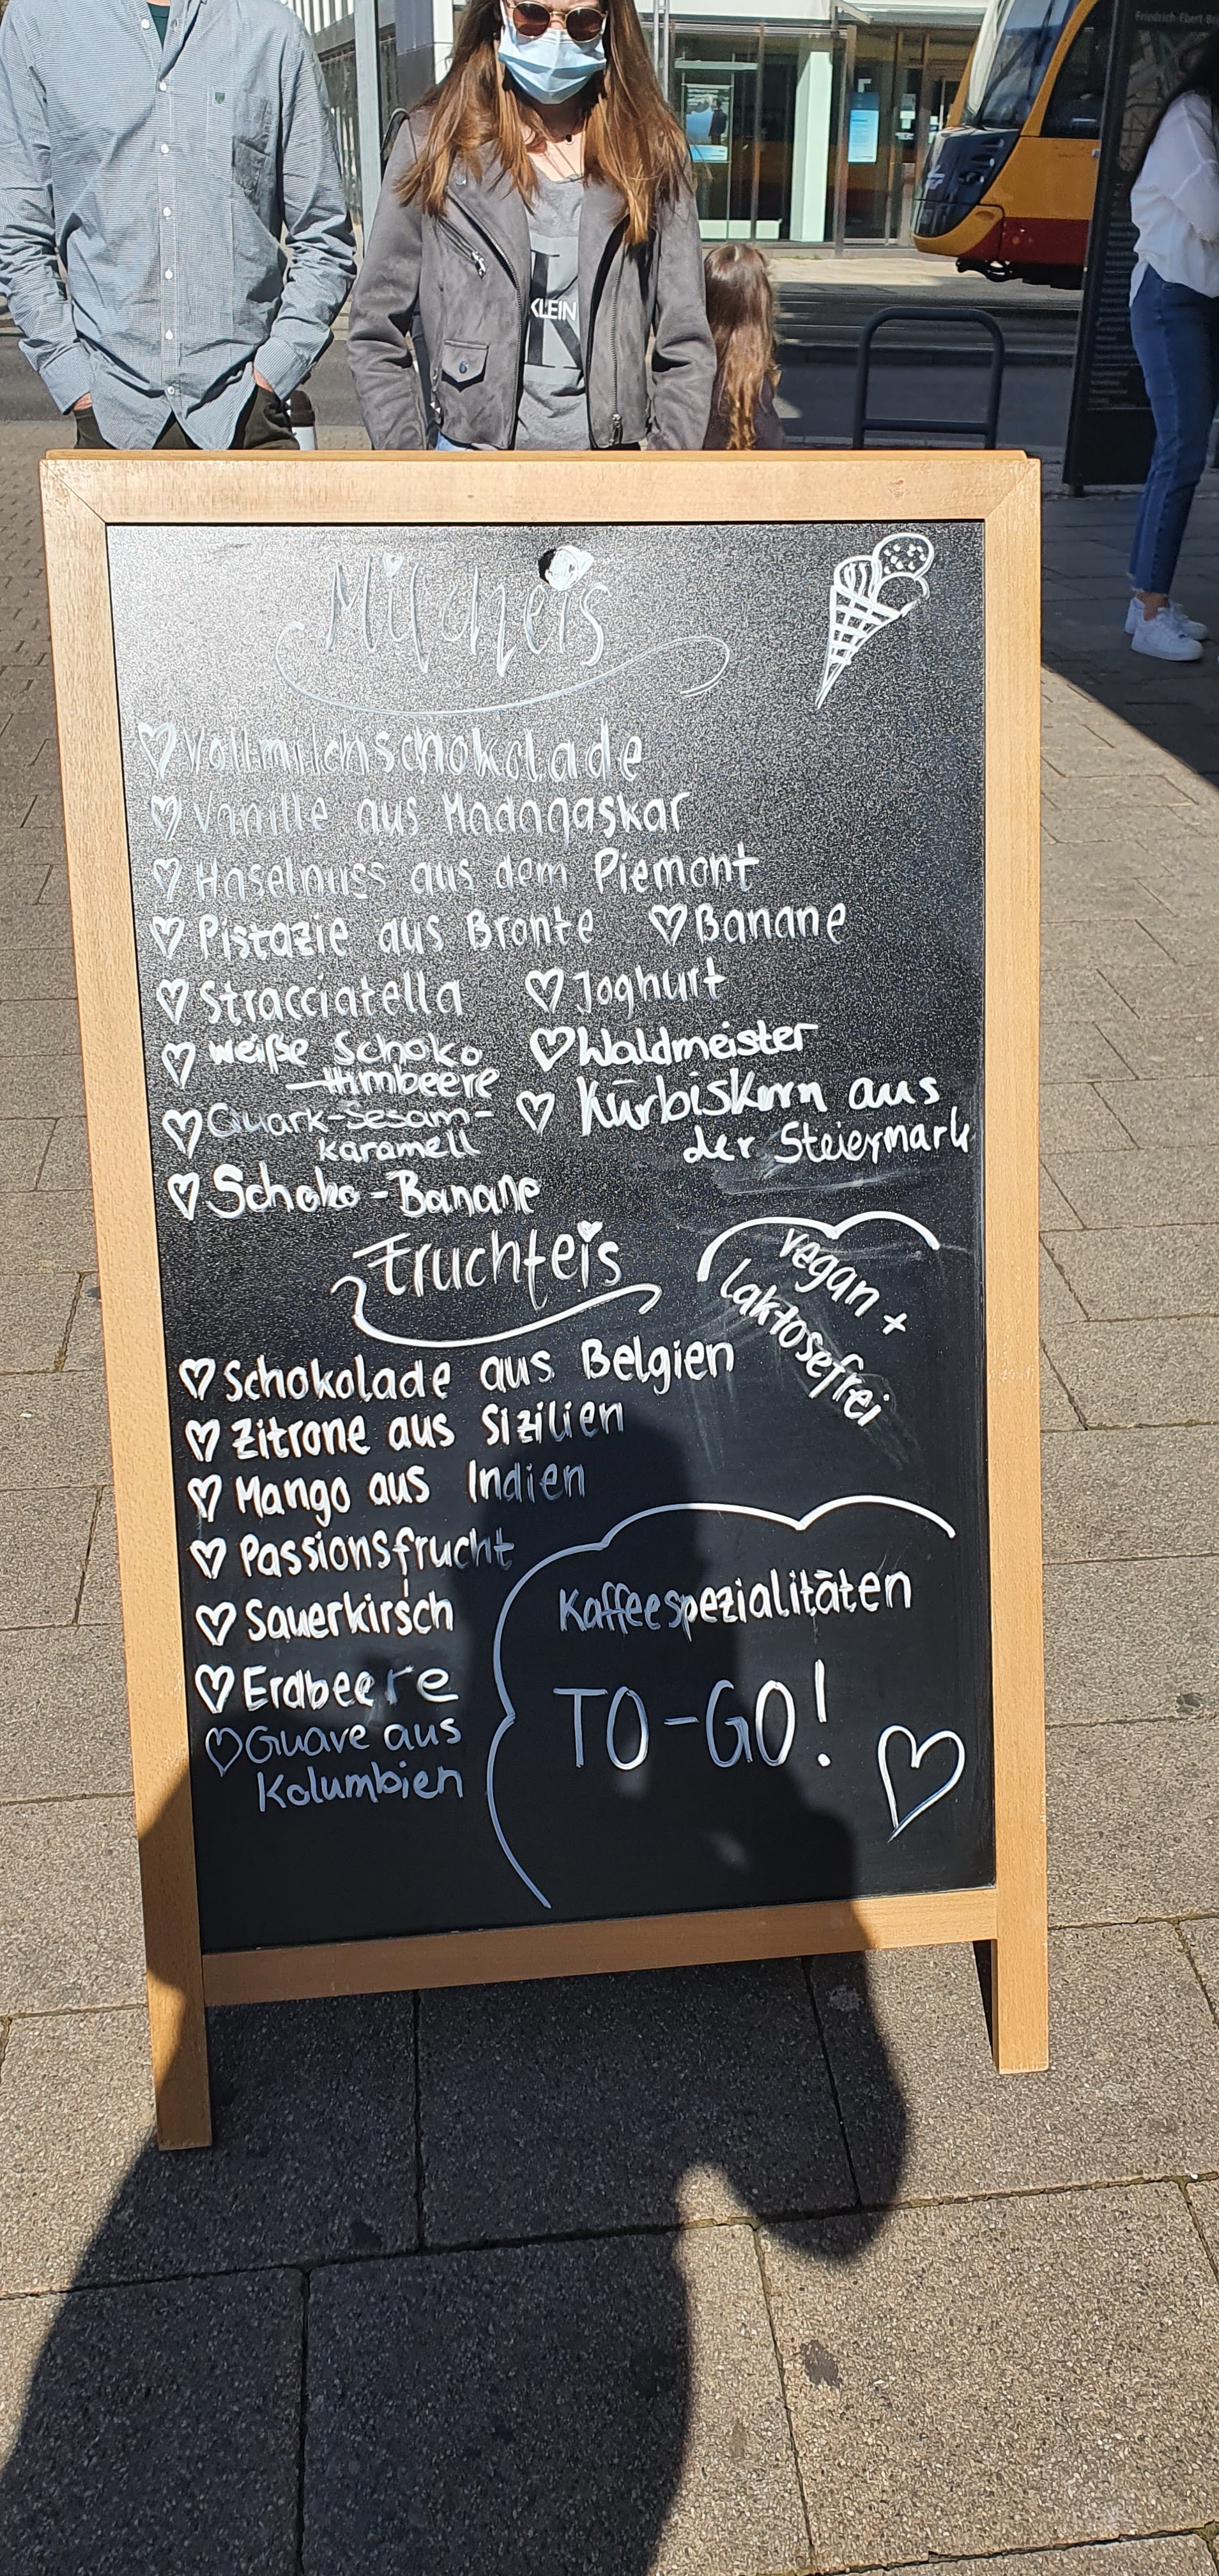 Friedrich-Ebert-
KLEIN
Milcheis
Vollmilchschokolade
Vanille aus Madagaskar
Haselnuss aus dem Piemont
Pistazie aus Bronte
Banane
Stracciatella
Joghurt
weiße Schoko
-Himbeere
Waldmeister
Quark-Sesam-
karamell
Kürbiskern aus
der Steiermark
Schoko-Banane
Fruchteis
vegan +
laktosefrei
Schokolade aus Belgien
Zitrone aus Sizilien
Mango aus Indien
Passionsfrucht
Sauerkirsch
Erdbeere
Guave aus
Kolumbien
Kaffeespezialitäten
TO-GO!